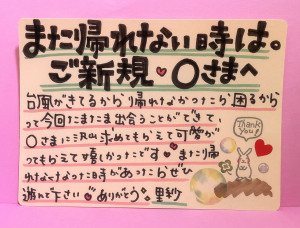 また帰れない時は。
ご新規♥○さまへ
台風がきてるから帰れなかったら困るから
って今回たまたま出会うことができて、
○さまに沢山求めてもらえて可愛が
ってもらえて嬉しかったです♥また帰り
れなくなった時があったらぜひ
遊んで下さい♥ありがとう。里紗
Thank You!